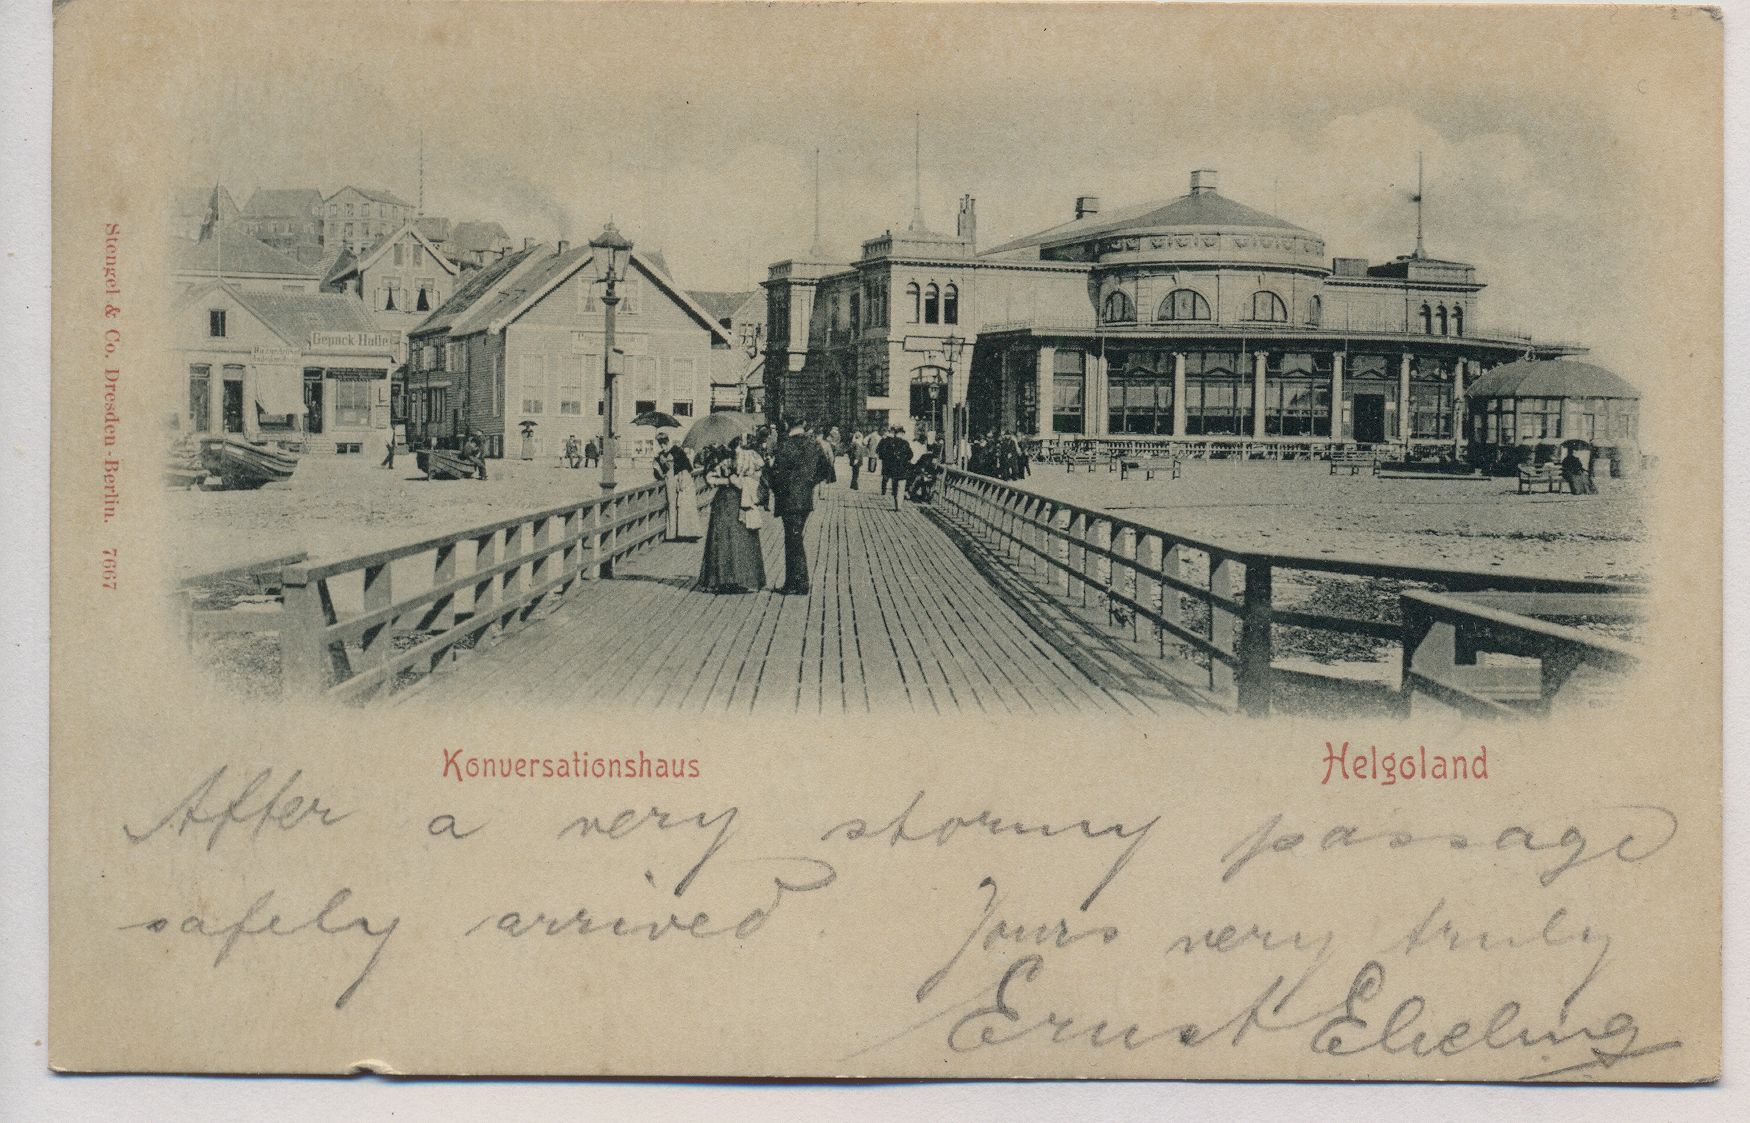 Stengel & Co. Dresden-Berlin. 7667
Gepäck-Halle
Konversationshaus
Helgoland
After a very stormy passage
safely arrived. Yours very truly
Ernst Ebeling